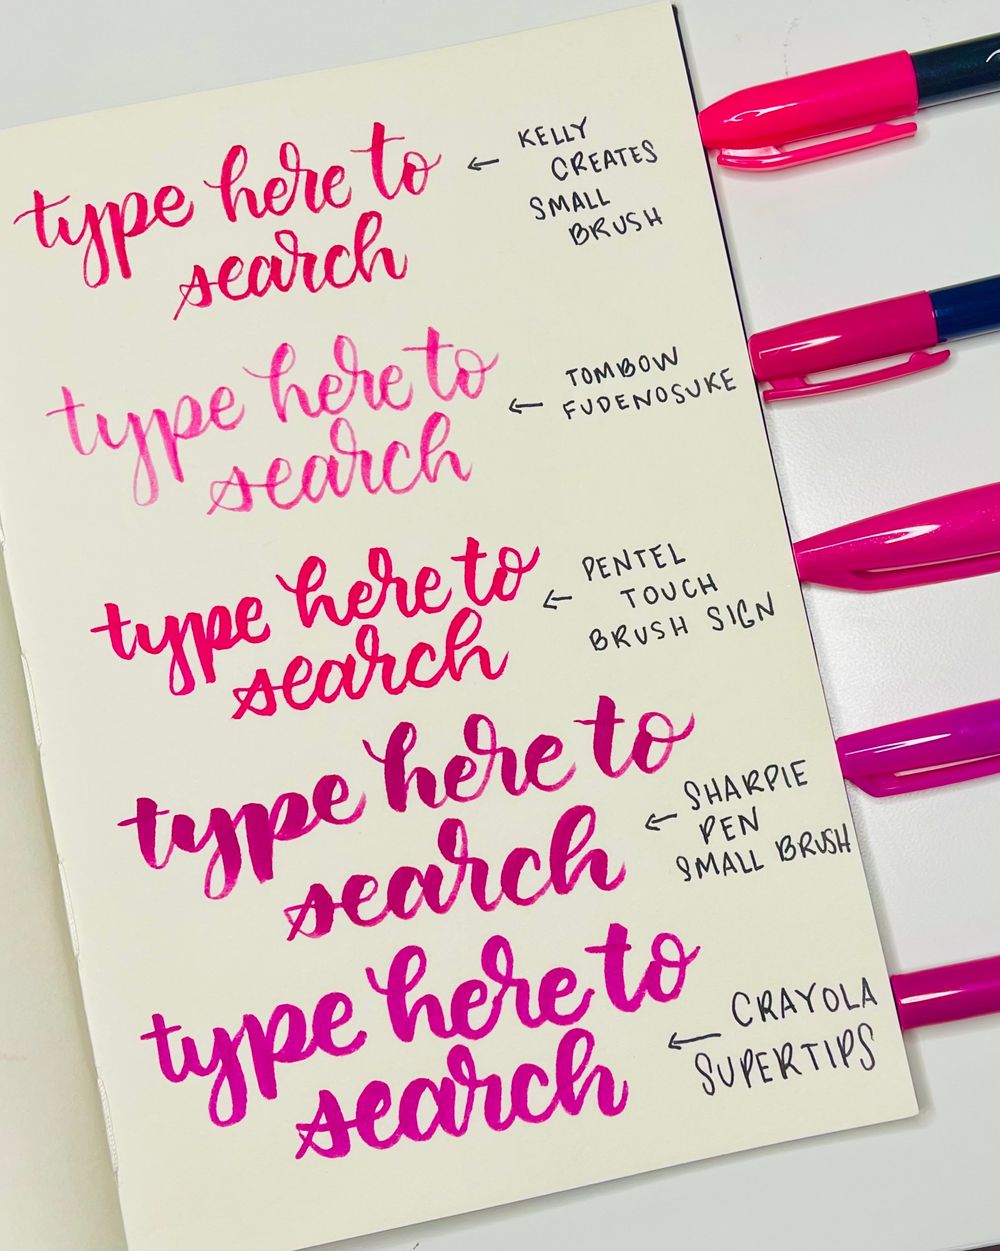 type here to
search
← KELLY
CREATES
SMALL
BRUSH
type here to
search
← TOMBOW
FUDENOSUKE
type here to
search
← PENTEL
TOUCH
BRUSH SIGN
type here to
search
← SHARPIE
PEN
SMALL BRUSH
type here to
search
← CRAYOLA
SUPERTIPS